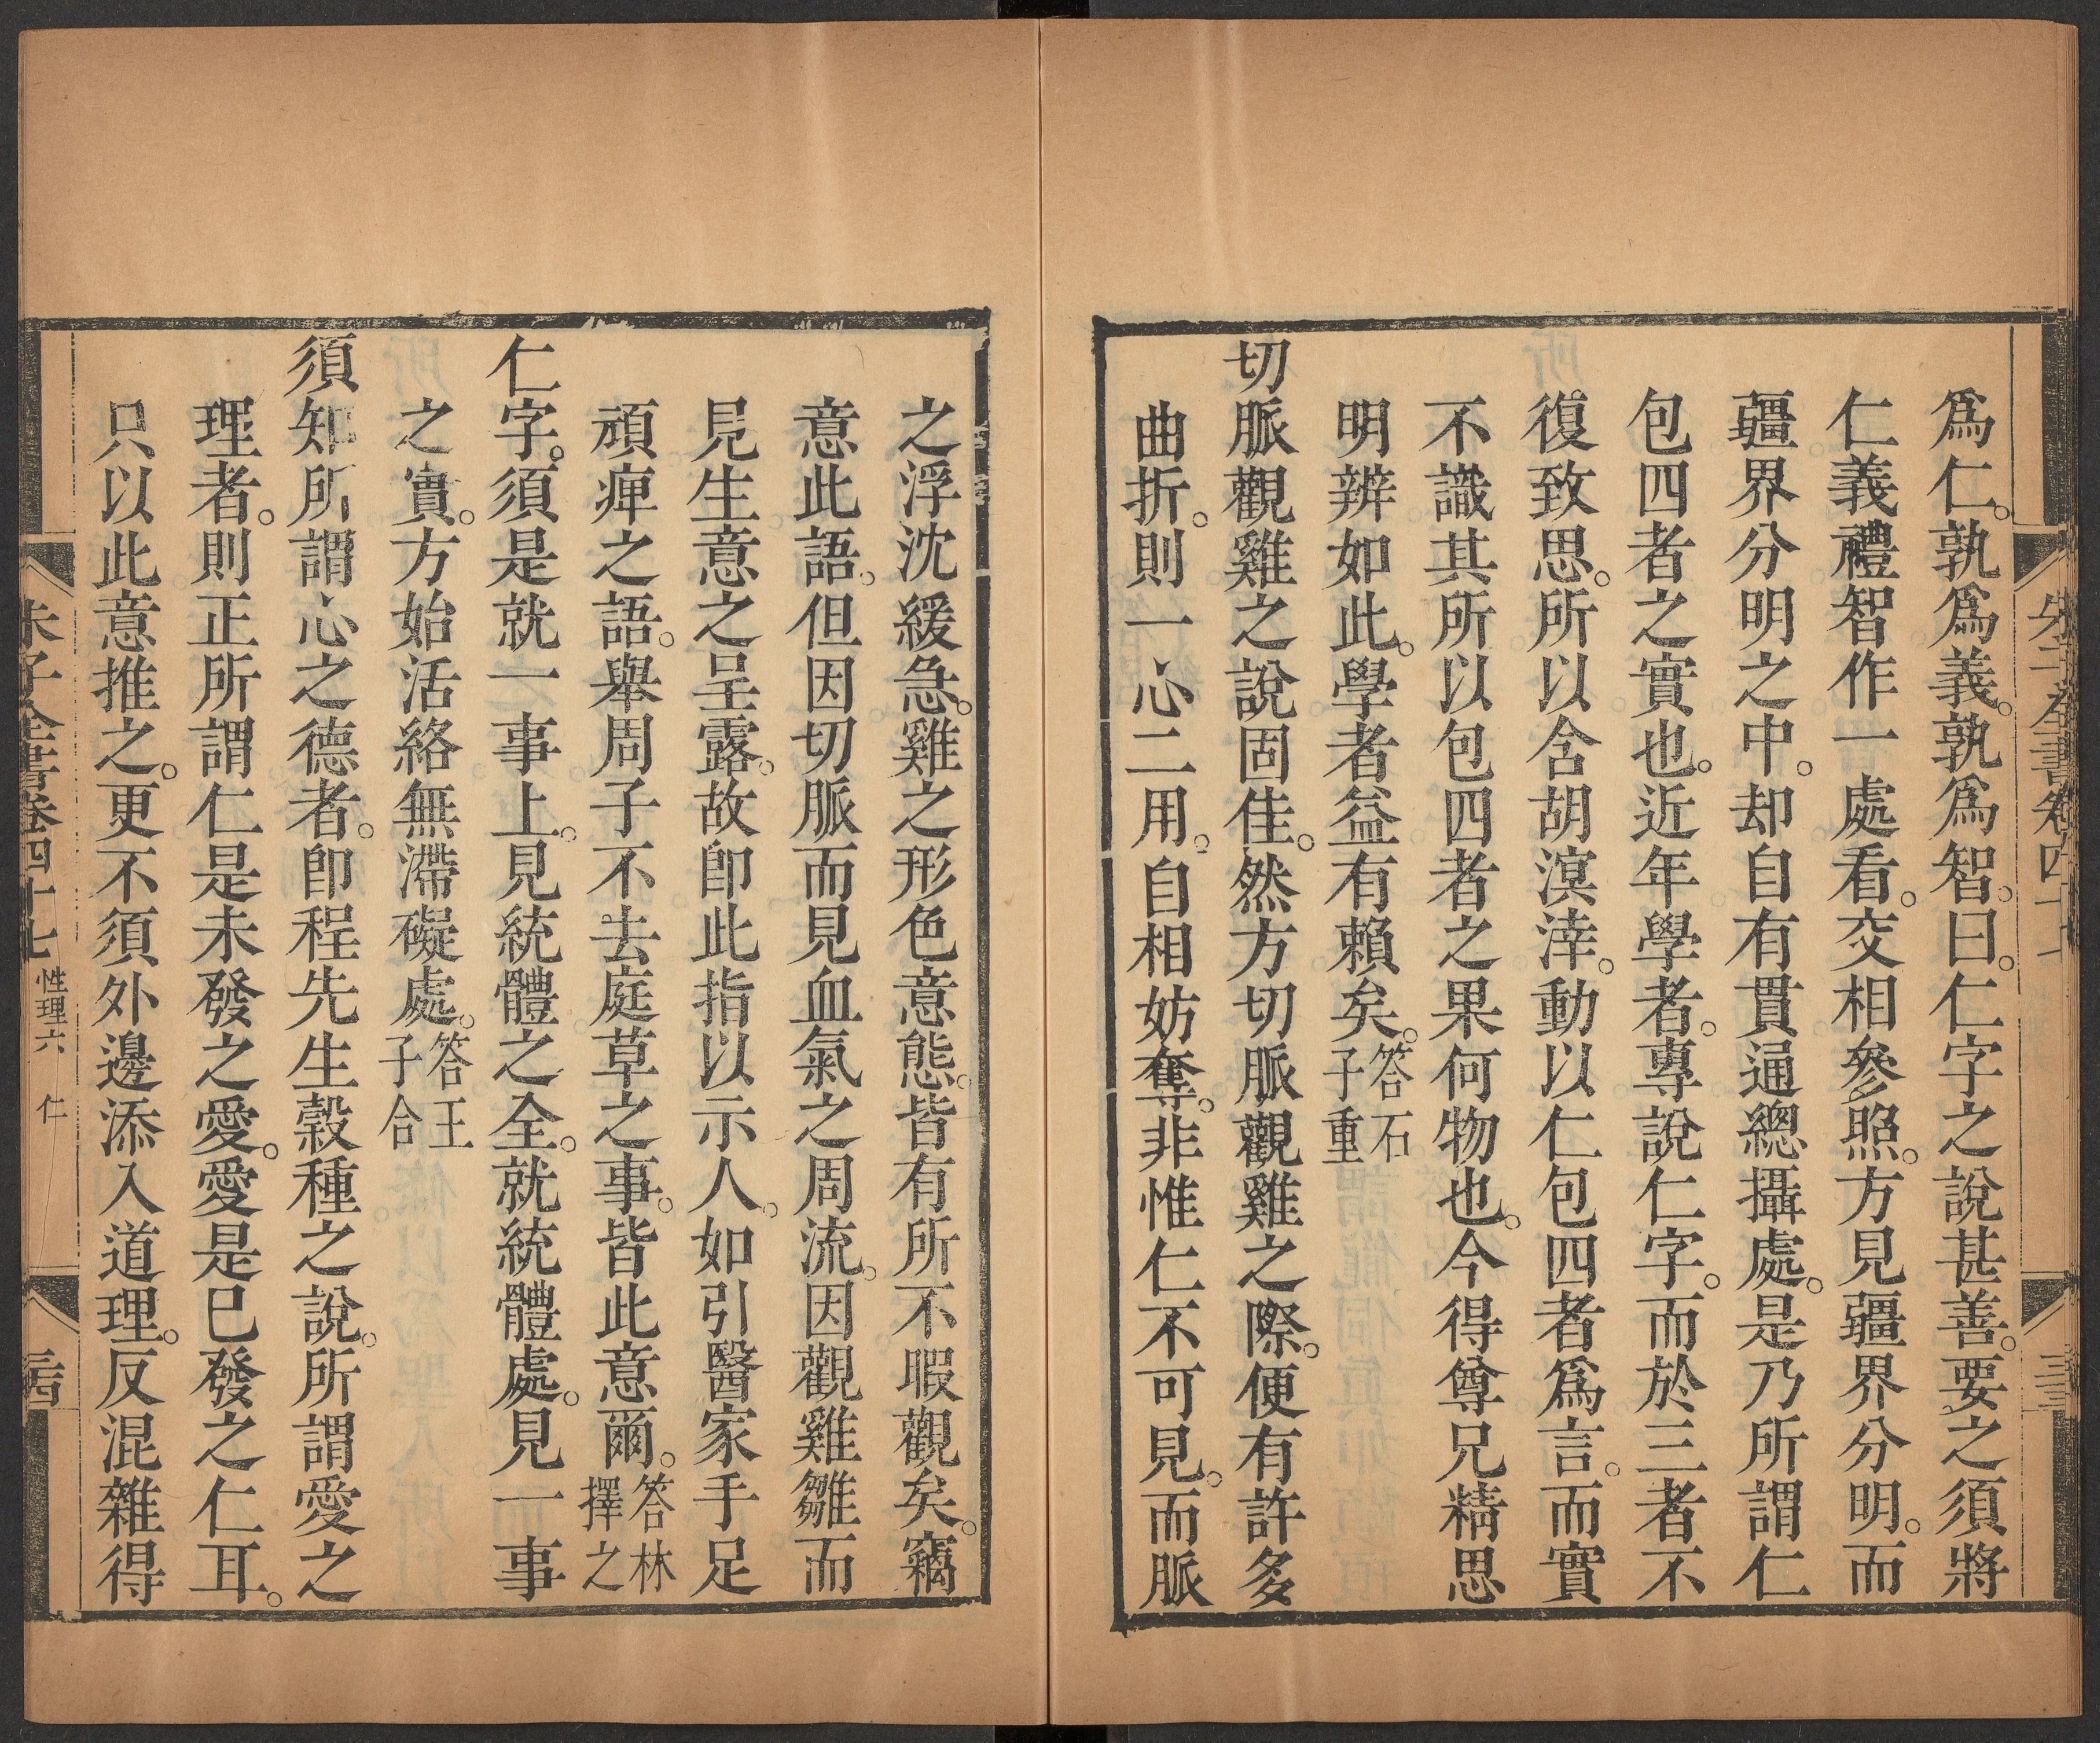 為仁。孰為義。孰為智。曰。仁字之說甚善。要之須將
仁義禮智作一處看。交相參照。方見疆界分明。而
疆界分明之中。却自有貫通總攝處。是乃所謂仁
包四者之實也。近年學者。專說仁字。而於三者不
復致思。所以含胡溟涬。動以仁包四者為言。而實
不識其所以包四者之果何物也。今得尊兄精思
明辨如此。學者益有賴矣。答石子重
切脈觀雞之說固佳。然方切脈觀雞之際。便有許多
曲折。則一心二用。自相妨奪。非惟仁不可見。而脈
之浮沈緩急。雞之形色意態。皆有所不暇觀矣。竊
意此語。但因切脈而見血氣之周流。因觀雞雛而
見生意之呈露。故卽此指以示人。如引醫家手足
頑痺之語。舉周子不去庭草之事。皆此意爾。答林擇之
仁字。須是就一事上。見統體之全。就統體處。見一事
之實。方始活絡無滯礙處。答王子合
須知所謂心之德者。卽程先生穀種之說。所謂愛之
理者。則正所謂仁是未發之愛。愛是已發之仁耳。
只以此意推之。更不須外邊添入道理。反混雜得
朱子全書卷四十七 性理六 仁 三四